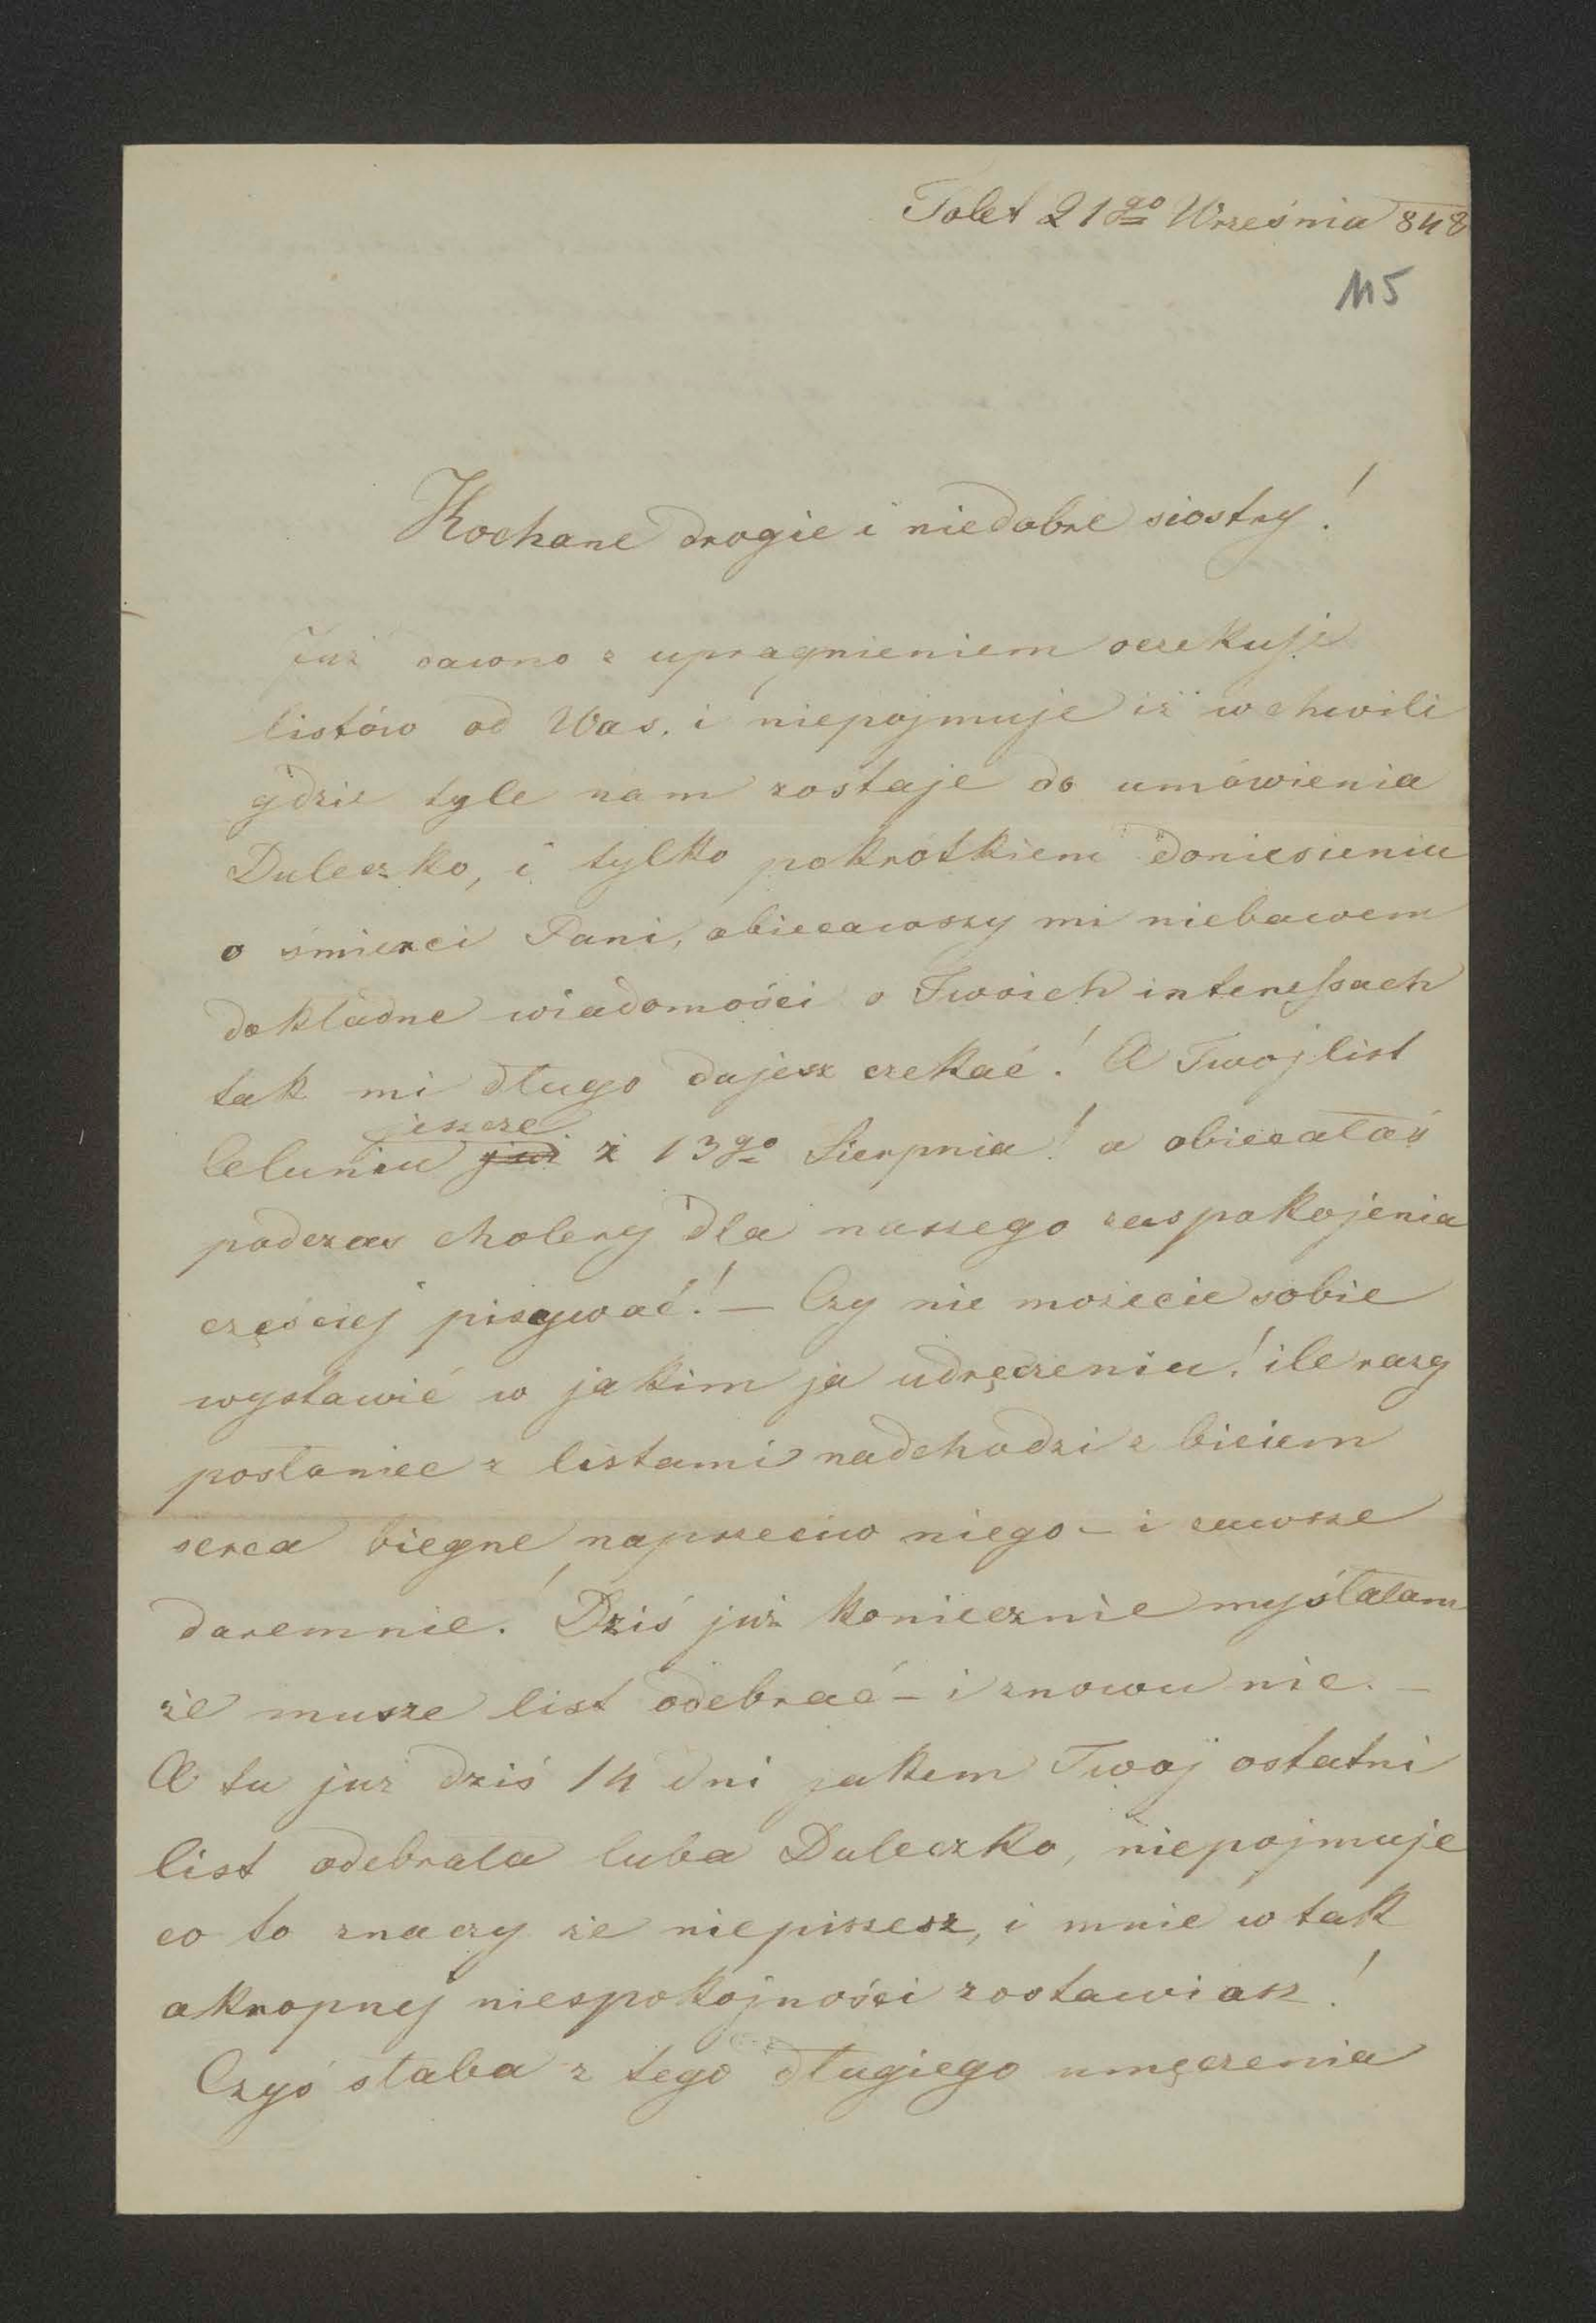 Tolet 21go Września 848
115
Kochane drogie i niedobre siostry!
Już dawno z upragnieniem oczekuje
listów od Was, i niepojmuje iż w chwili
gdzie tyle nam zostaje do umówienia
Duleczko, i tylko pokrótkiem doniesieniu
o śmierci Pani, obiecawszy mi niebawem
dokładne wiadomości o Twoich interessach
tak mi długo dajesz czekać! A Twoj list
jeszcze
Celuniu już z 13go Sierpnia! a obiecałaś
podczas cholery dla naszego zaspokojenia
częściej pisywać! — Czy nie możecie sobie
wystawić w jakim ja udręczeniu! ile razy
posłaniec z listami nadchodzi z biciem
serca biegne naprzeciw niego – i zawsze
daremnie! Dziś już koniecznie myślałam
że musze list odebrać – i znowu nie. –
A tu już dziś 14 dni jakem Twoj ostatni
list odebrała luba Duleczko, niepojmuje
co to znaczy że niepiszesz, i mnie w tak
okropnej niespokojności zostawiasz!
Czyś słaba z tego długiego umęczenia